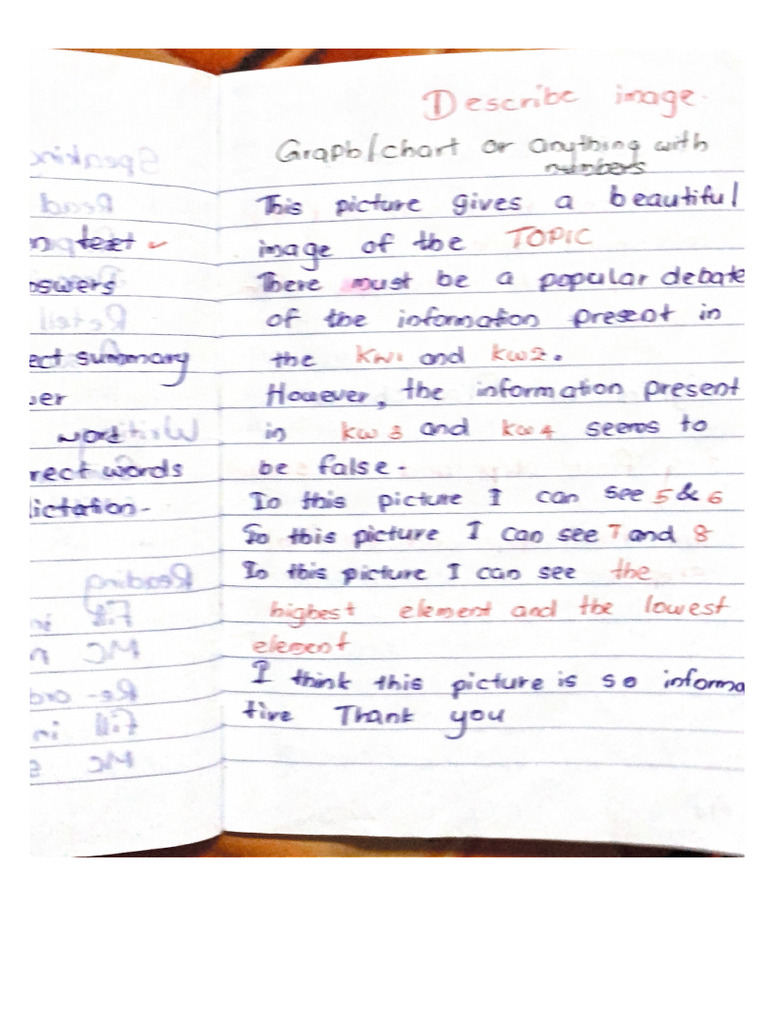 Describe image.
Graph/chart or anything with
numbers
This picture gives a beautiful
image of the TOPIC
There must be a popular debate
of the information present in
the KW1 and KW2.
However, the information present
in KW3 and KW4 seems to
be false.
In this picture I can see 5 & 6
In this picture I can see 7 and 8
In this picture I can see the
highest element and the lowest
element
I think this picture is so informa
tive Thank you
n text
swers
ect summary
er
rect words
ictation.